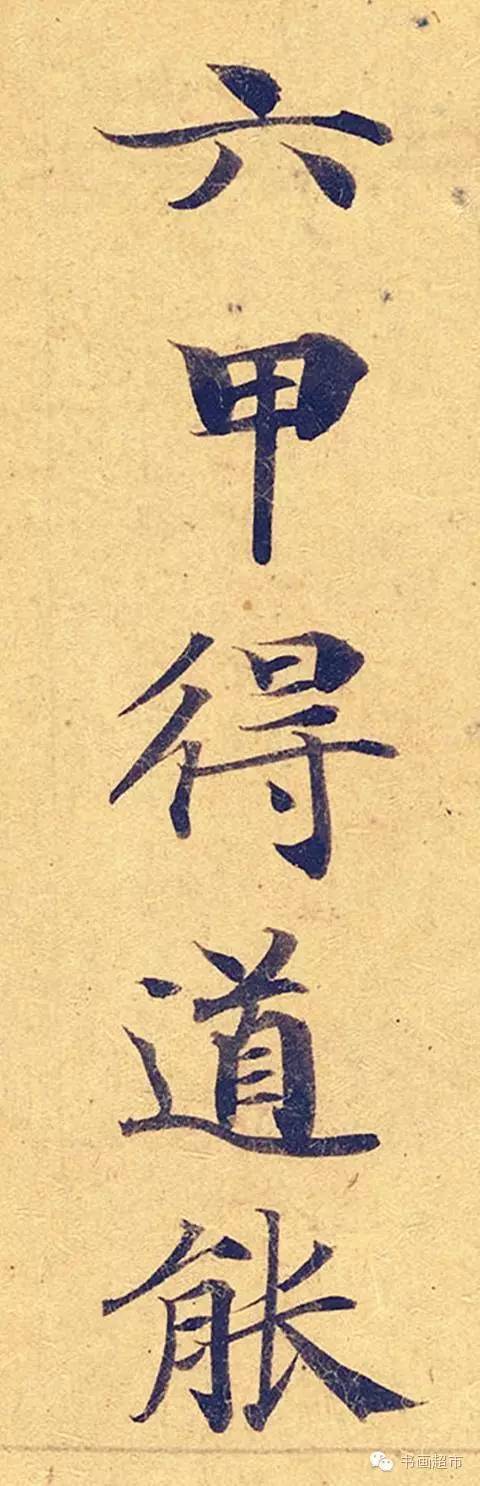 六甲得道能
书画超市